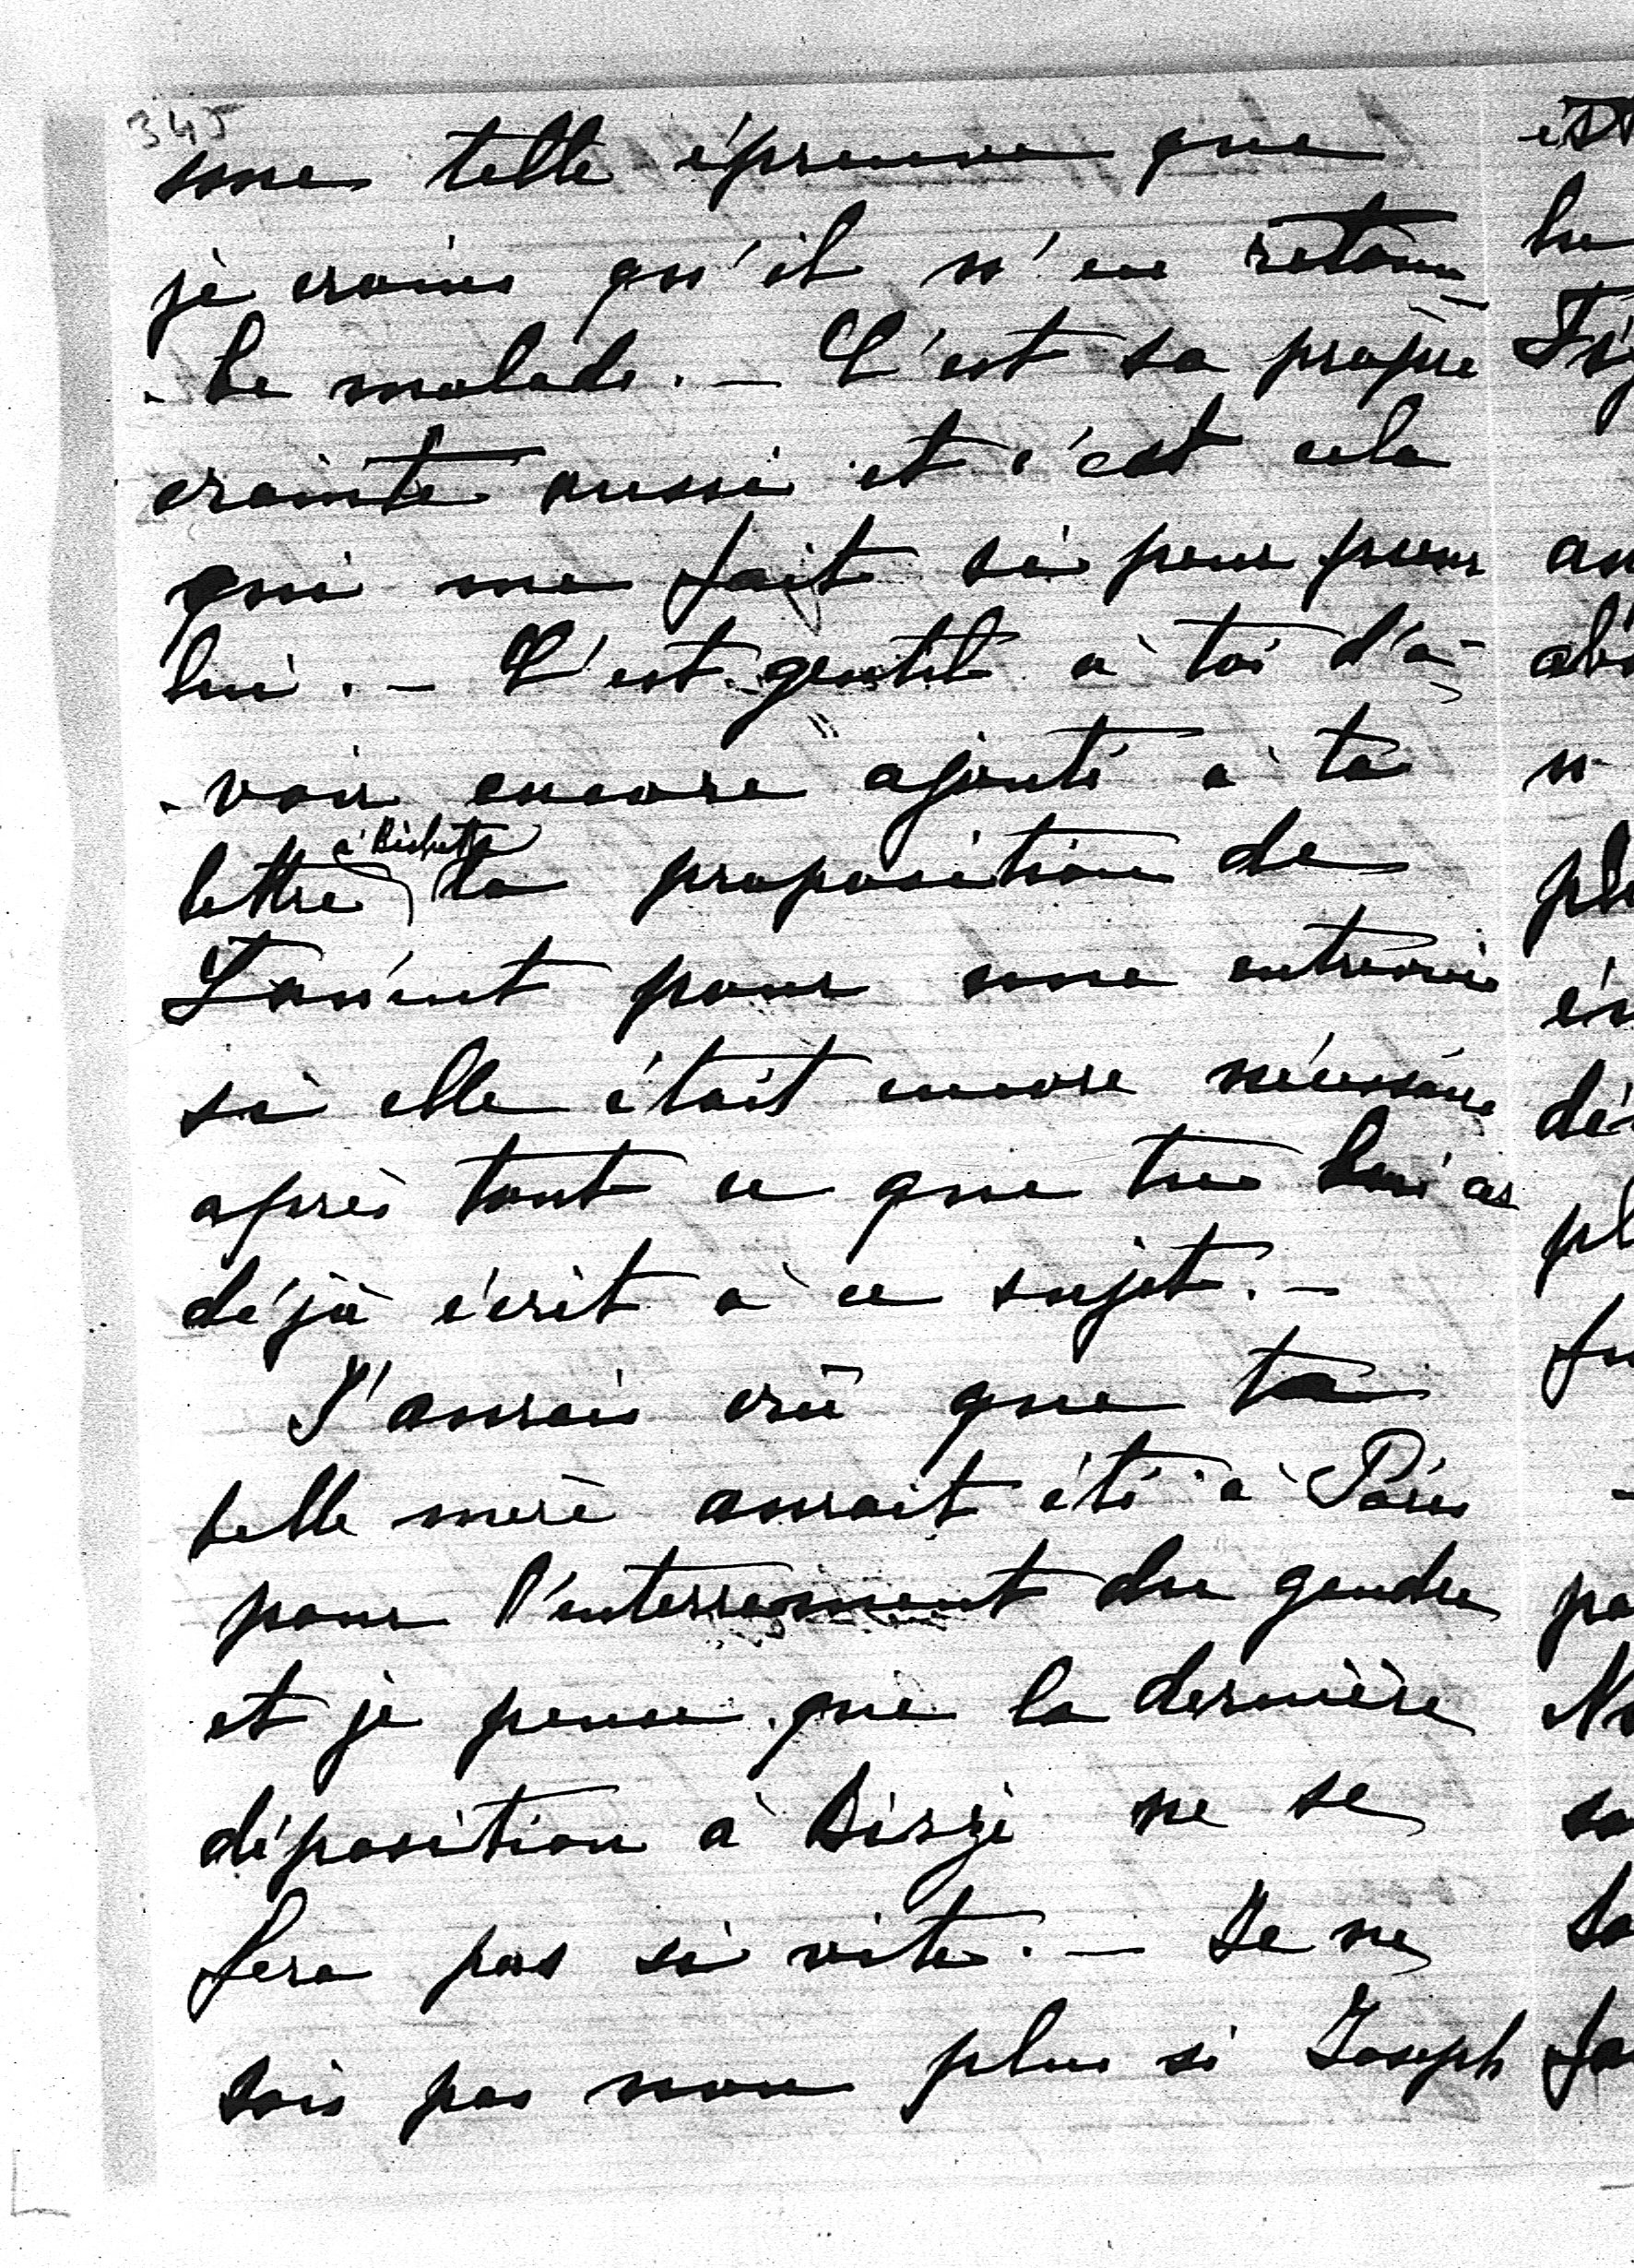 345
une telle épreuve que
je crains qu'il n'en retom-
-be malade. _ C'est sa propre
crainte aussi et c'est cela
qui me fait si peur pour
lui. _ C'est gentil à toi d'a-
-voir encore ajouté à ta
à Bichette
lettre ta proposition de
pour une entrevue
si elle était encore nécessaire
après tout ce que tu lui as
déjà écrit à ce sujet. _
J'aurais crû que ta
belle mère aurait été à Paris
pour l'enterrement du gendre
et je pense que la dernière
déposition à Bizzi ne se
fera pas si vite. _ Je ne
sais pas non plus si Joseph